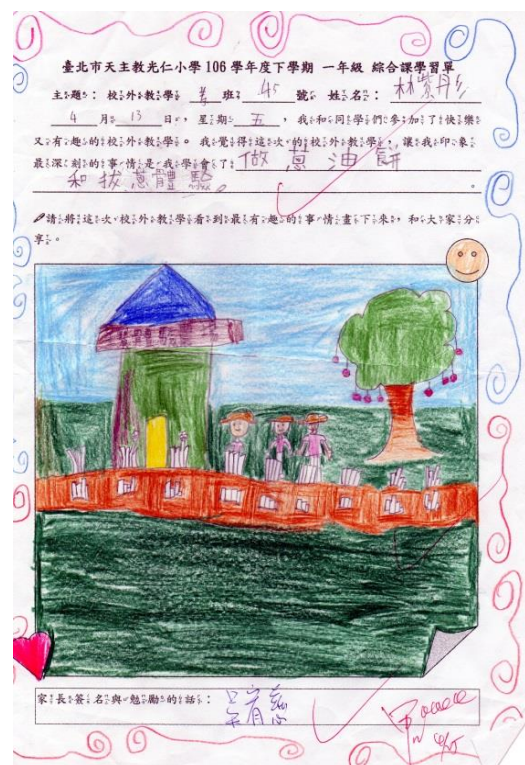 臺北市天主教光仁小學 106 學年度下學期 一年級 綜合課學習單
主題：校外教學 孝 班 45 號 姓名：林
4 月 13 日，星期 五，我和同學們參加了快樂
又有趣的校外教學。我覺得這次的校外教學，讓我印象
最深刻的事情是我學會了 做蔥油餅
和拔蔥體驗。
請將這次校外教學看到最有趣的事情畫下來，和大家分
享。
家長簽名與勉勵的話：